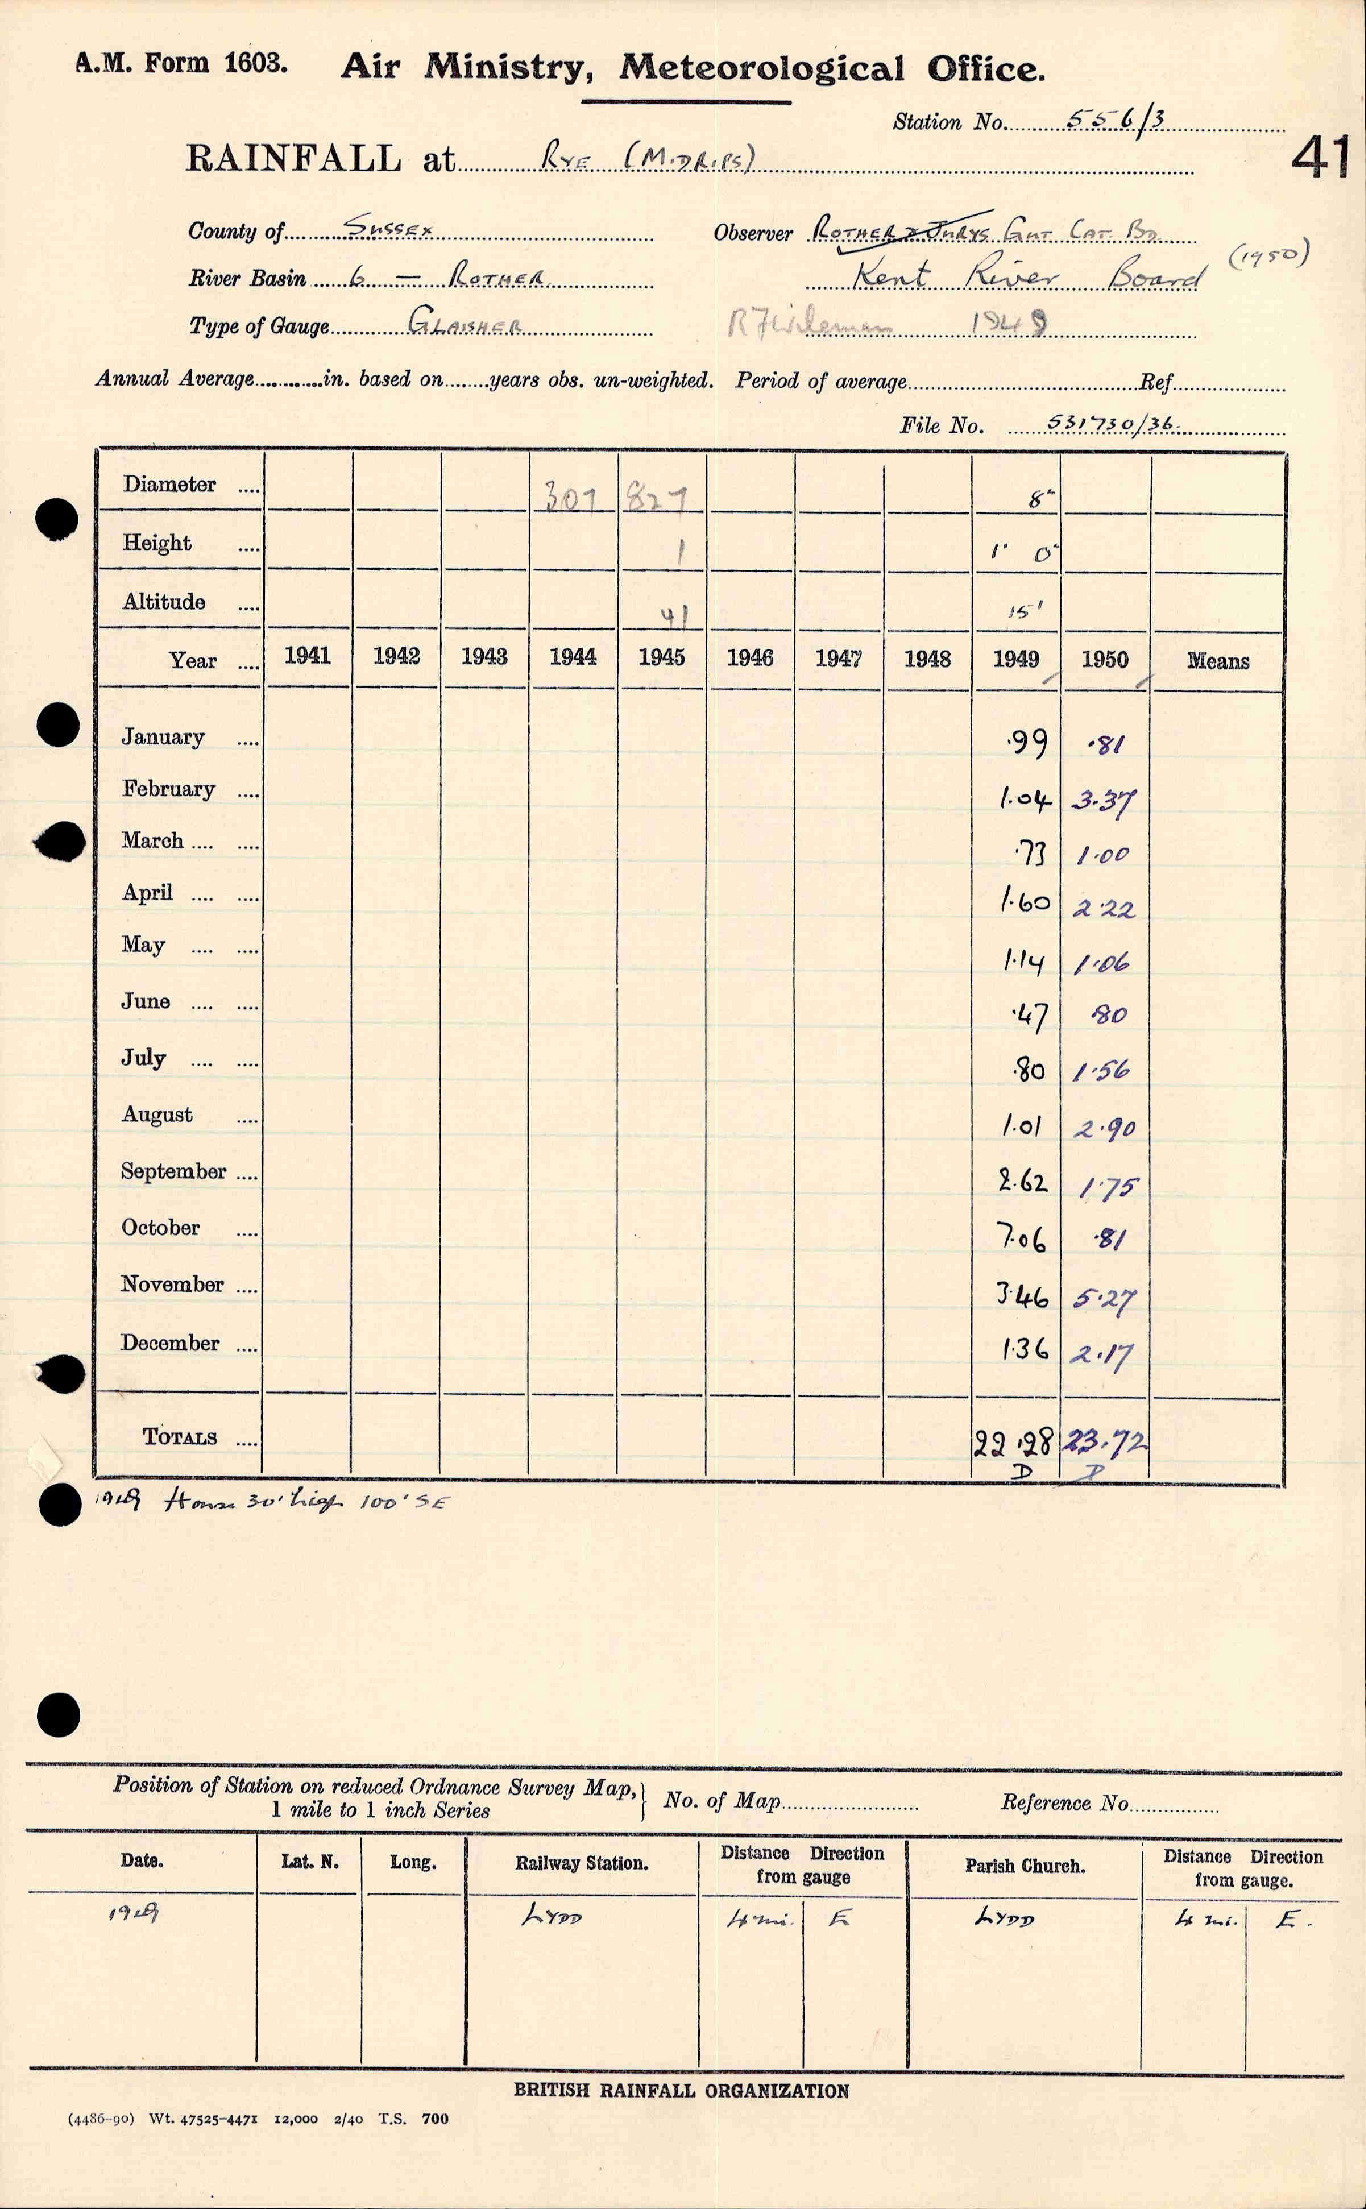 A.M. Form 1603. Air Ministry, Meteorological Office.
Station No. 556/3
41
RAINFALL at RYE (M.DR.PS)
County of SUSSEX Observer ROTHER & JURYS GUT CAT. BD
River Basin 6 — ROTHER Kent River Board (1950)
Type of Gauge GLAISHER 1949
Annual Average............in. based on........years obs. un-weighted. Period of average Ref.
File No. 531730/36
Diameter .... 307 827 8"
Height .... 1 1' 0"
Altitude .... 41 15'
Year .... 1941 1942 1943 1944 1945 1946 1947 1948 1949 1950 Means
January .... .99 .81
February .... 1.04 3.37
March .... .... .73 1.00
April .... .... 1.60 2.22
May .... .... 1.14 1.06
June .... .... .47 .80
July .... .... .80 1.56
August .... 1.01 2.90
September .... 2.62 1.75
October .... 7.06 .81
November .... 3.46 5.27
December .... 1.36 2.17
TOTALS .... 22.28 23.72
D D
1949 House 30' high 100' SE
Position of Station on reduced Ordnance Survey Map, 1 mile to 1 inch Series } No. of Map Reference No.
Date. Lat. N. Long. Railway Station. Distance Direction from gauge Parish Church. Distance Direction from gauge.
1949 LYDD 4 mi. E LYDD 4 mi. E.
BRITISH RAINFALL ORGANIZATION
(4486-90) Wt. 47525-4471 12,000 2/40 T.S. 700